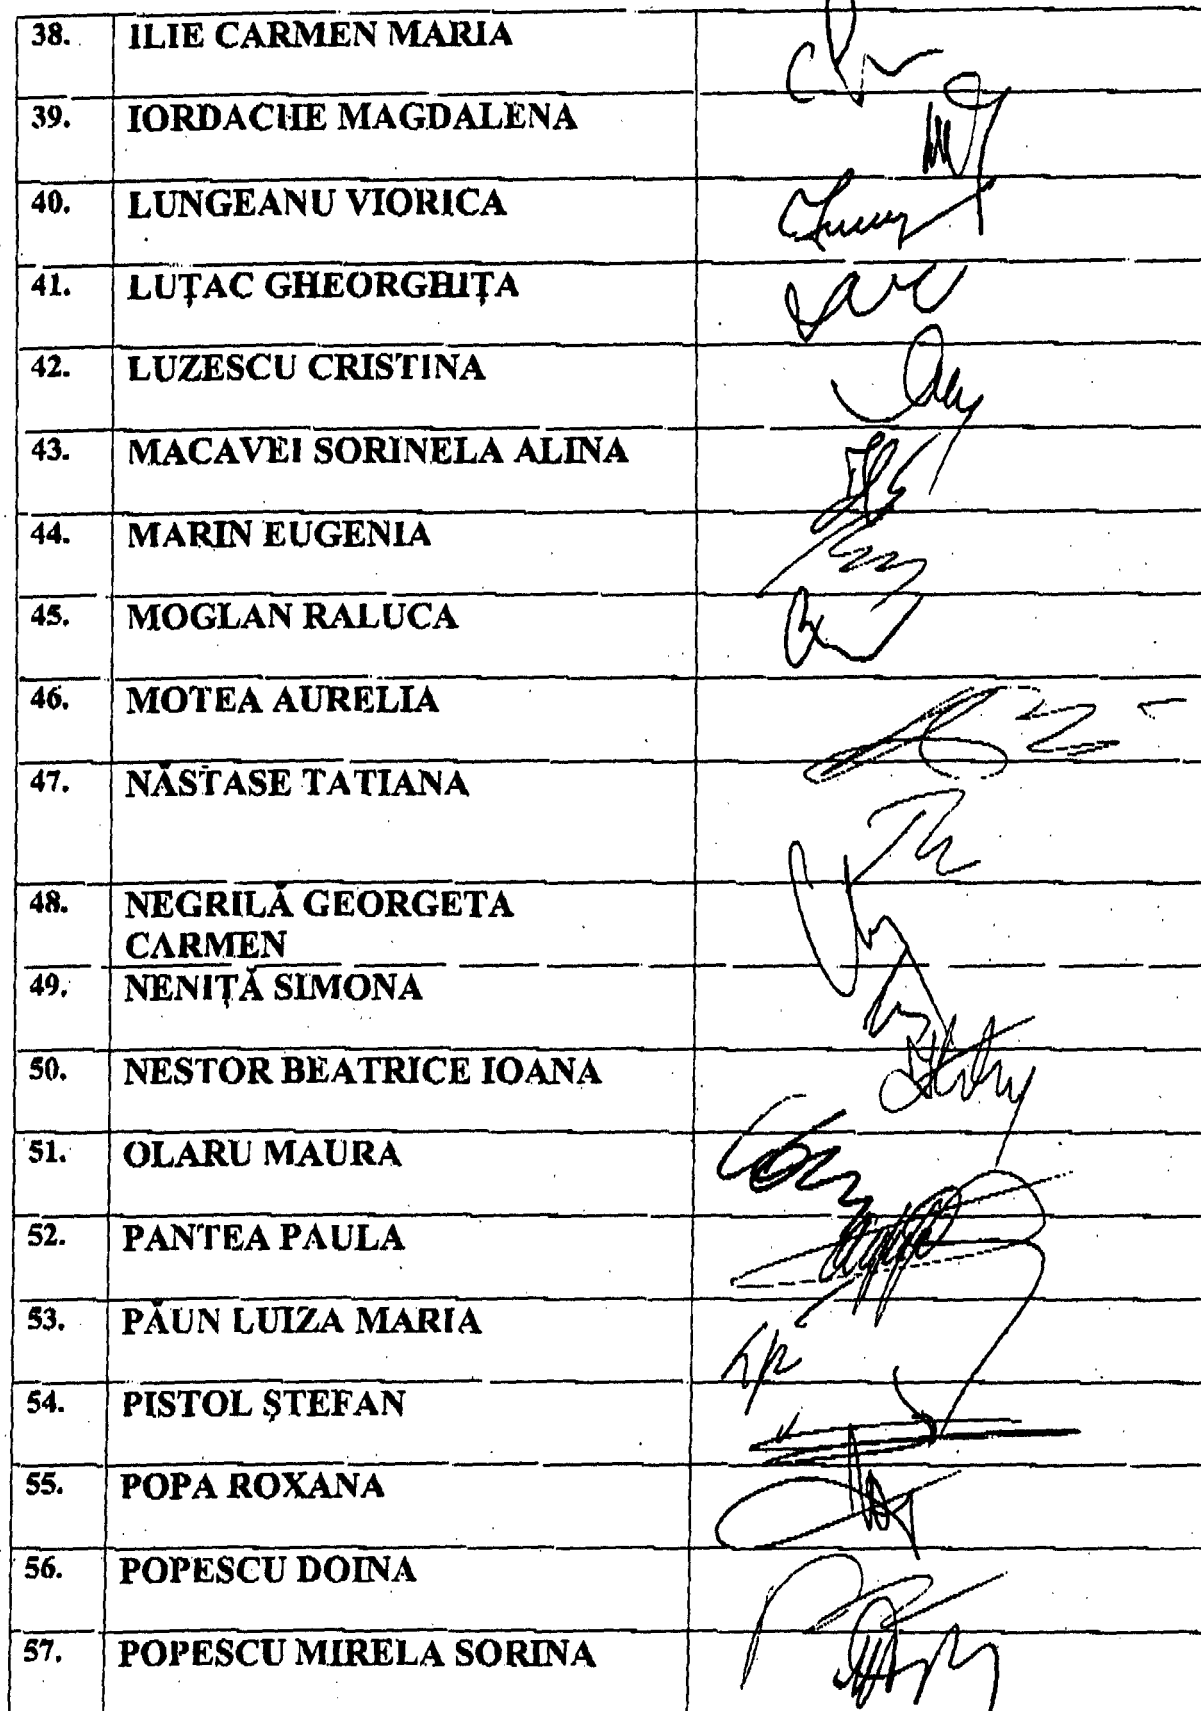 38. ILIE CARMEN MARIA
39. IORDACHE MAGDALENA
40. LUNGEANU VIORICA
41. LUȚAC GHEORGHIȚA
42. LUZESCU CRISTINA
43. MACAVEI SORINELA ALINA
44. MARIN EUGENIA
45. MOGLAN RALUCA
46. MOTEA AURELIA
47. NĂSTASE TATIANA
48. NEGRILĂ GEORGETA
CARMEN
49. NENIȚĂ SIMONA
50. NESTOR BEATRICE IOANA
51. OLARU MAURA
52. PANTEA PAULA
53. PĂUN LUIZA MARIA
54. PISTOL ȘTEFAN
55. POPA ROXANA
56. POPESCU DOINA
57. POPESCU MIRELA SORINA